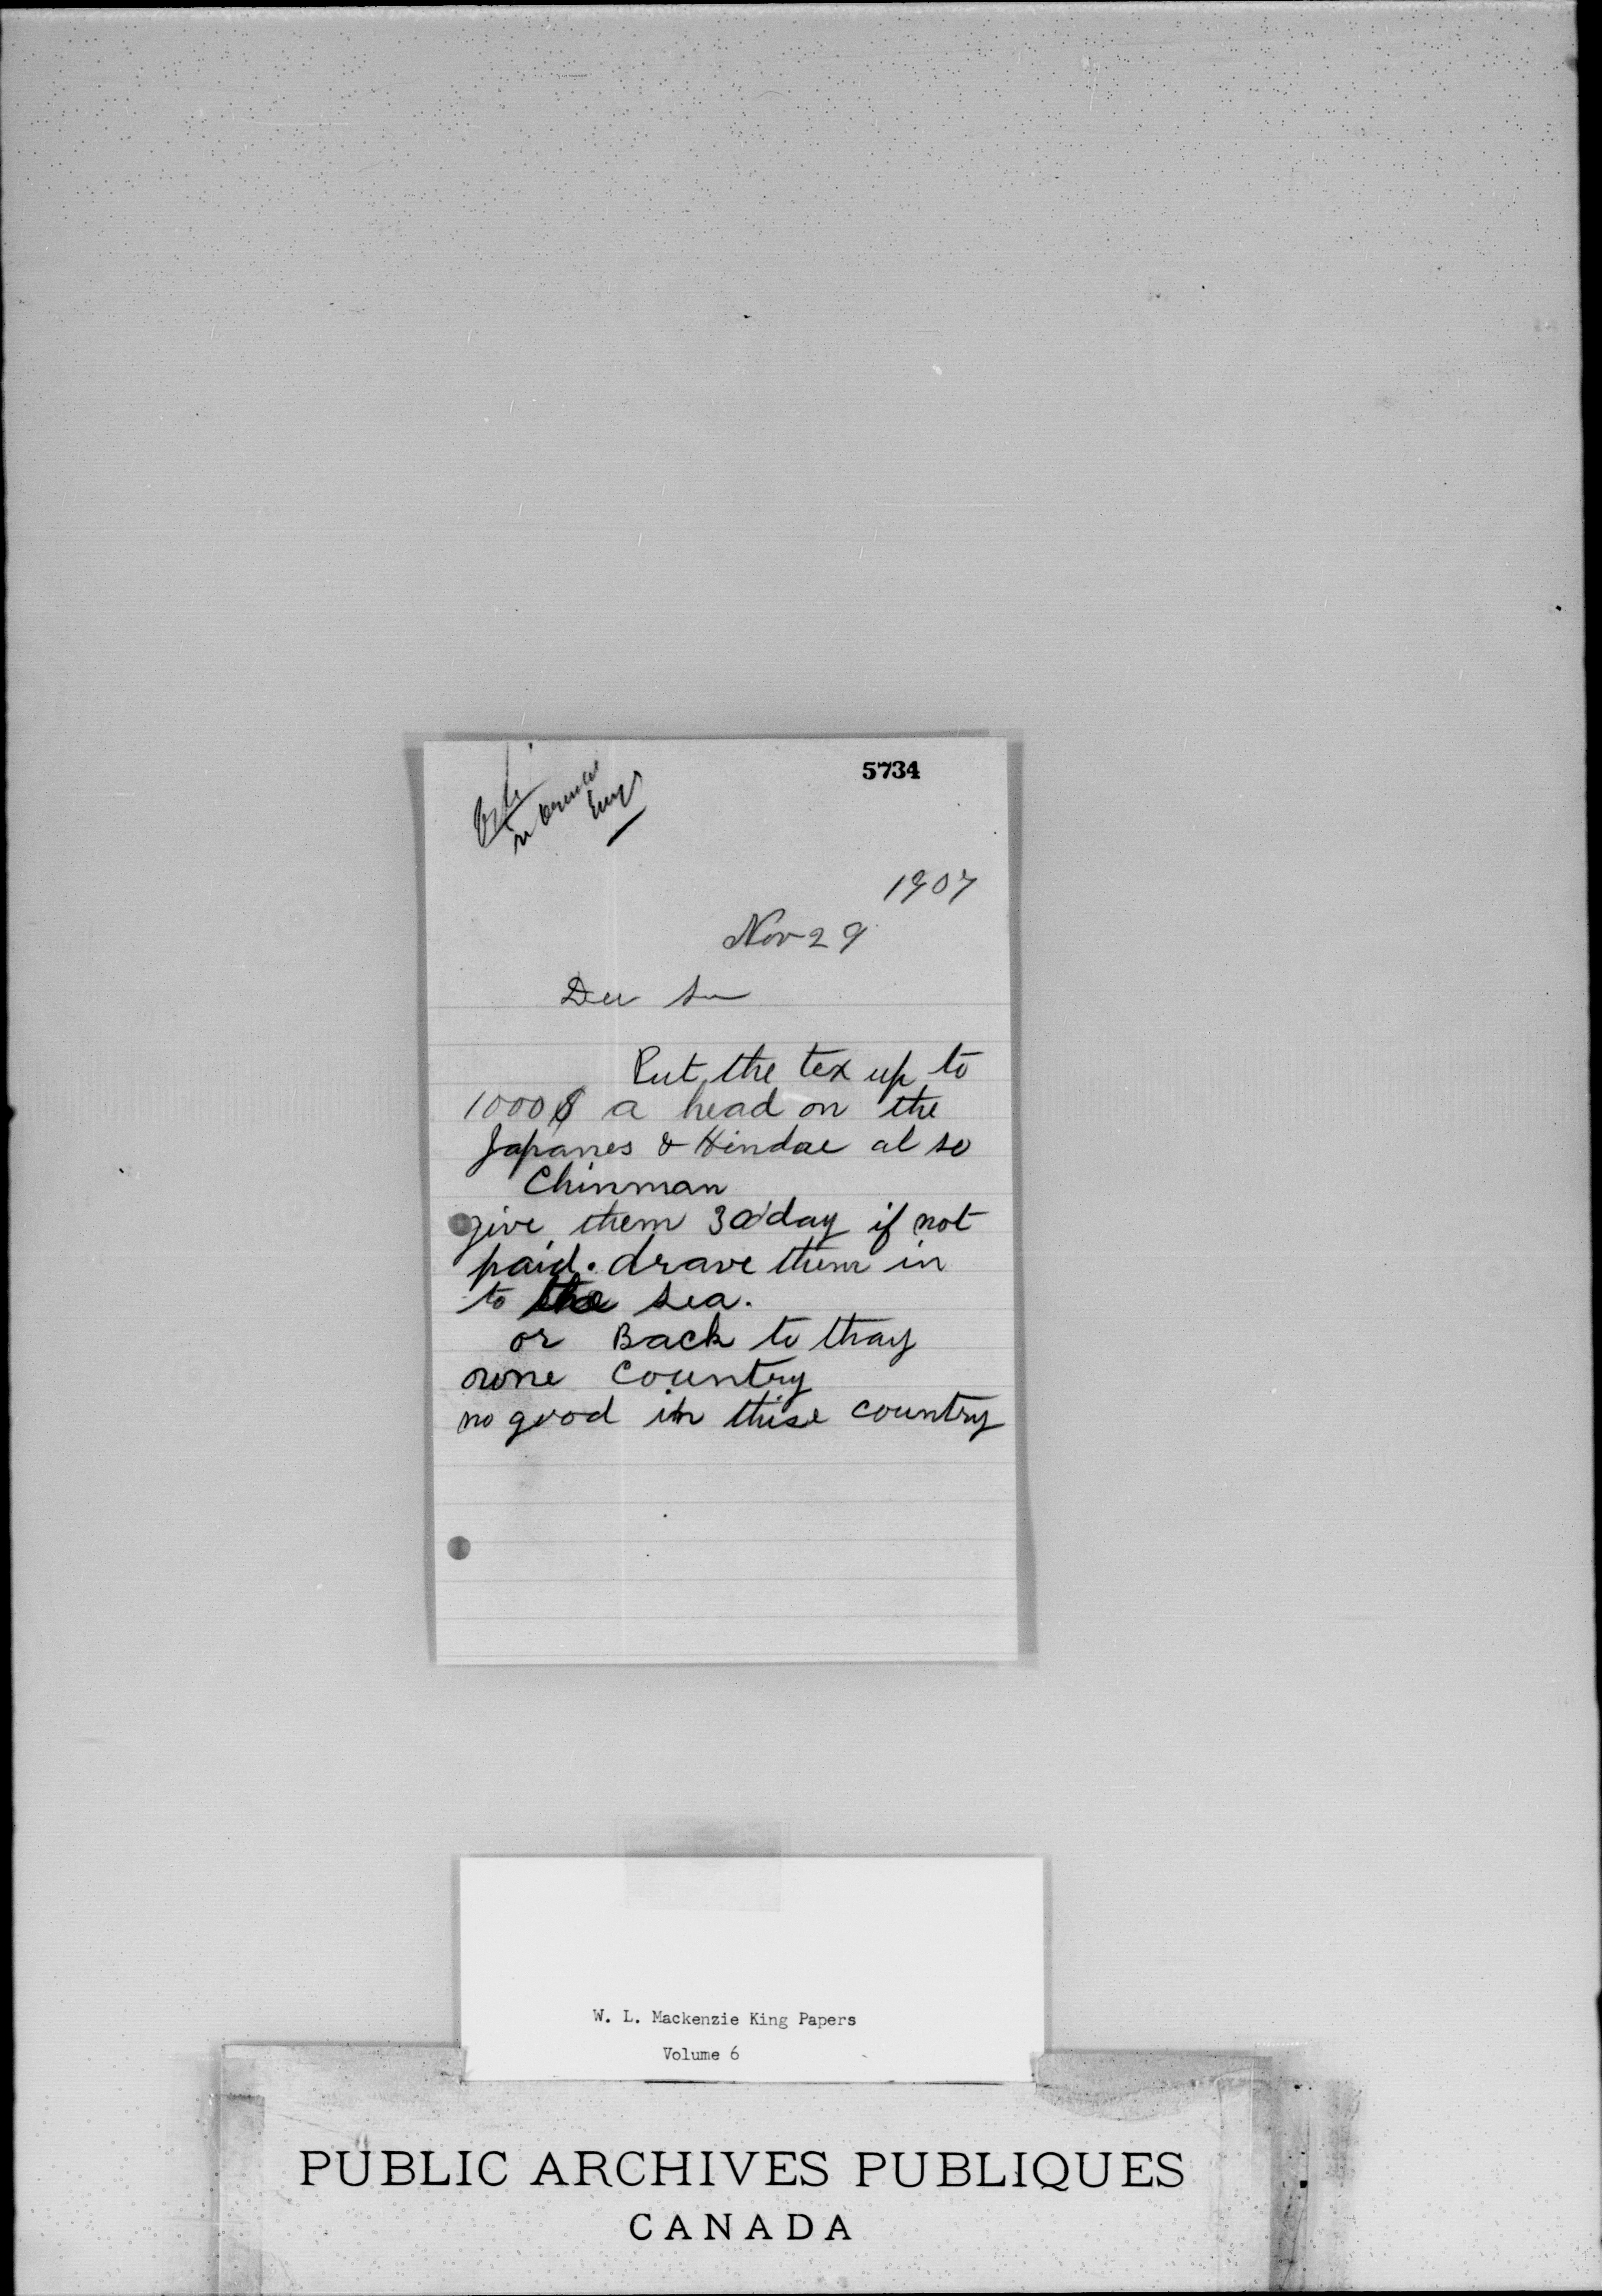 5734
in
1907
Nov 29
Dear Sir
Put the tex up to
1000$ a head on the
Japanes & Hindoe al so
Chinman
give them 30 day if not
paid. drave them in
to the sea.
or Back to thay
owne Country
no good in thise country
W. L. Mackenzie King Papers
Volume 6
PUBLIC ARCHIVES PUBLIQUES
CANADA